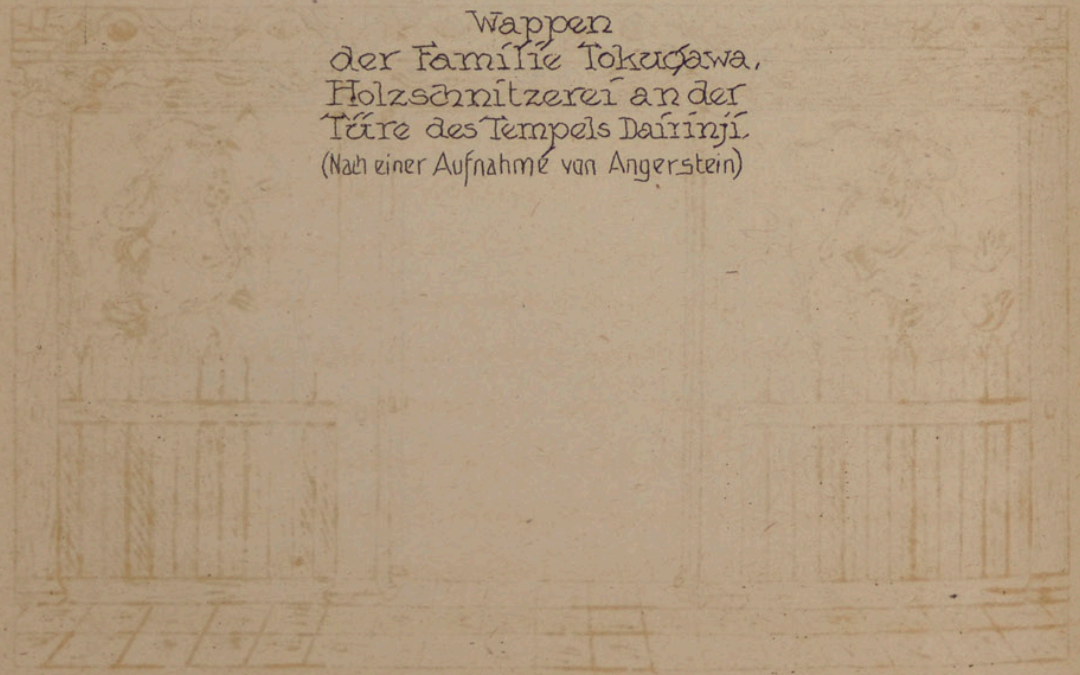 Wappen
der Familie Tokugawa,
Holzschnitzerei an der
Türe des Tempels Dairinji.
(Nach einer Aufnahme von Angerstein)